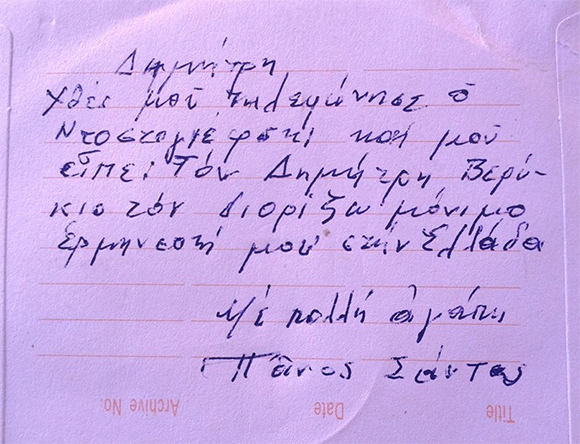 Δημήτρη
Χθές μοῦ τηλεφώνησε ὁ
Ντοστογιέφσκι καί μοῦ
εἶπε: Τόν Δημήτρη Βερύ-
κιο τόν διορίζω μόνιμο
ἑρμηνευτή μου στήν Ελλάδα
Μέ πολλή ἀγάπη
Πᾶνος Σάντας
Title Date Archive No.